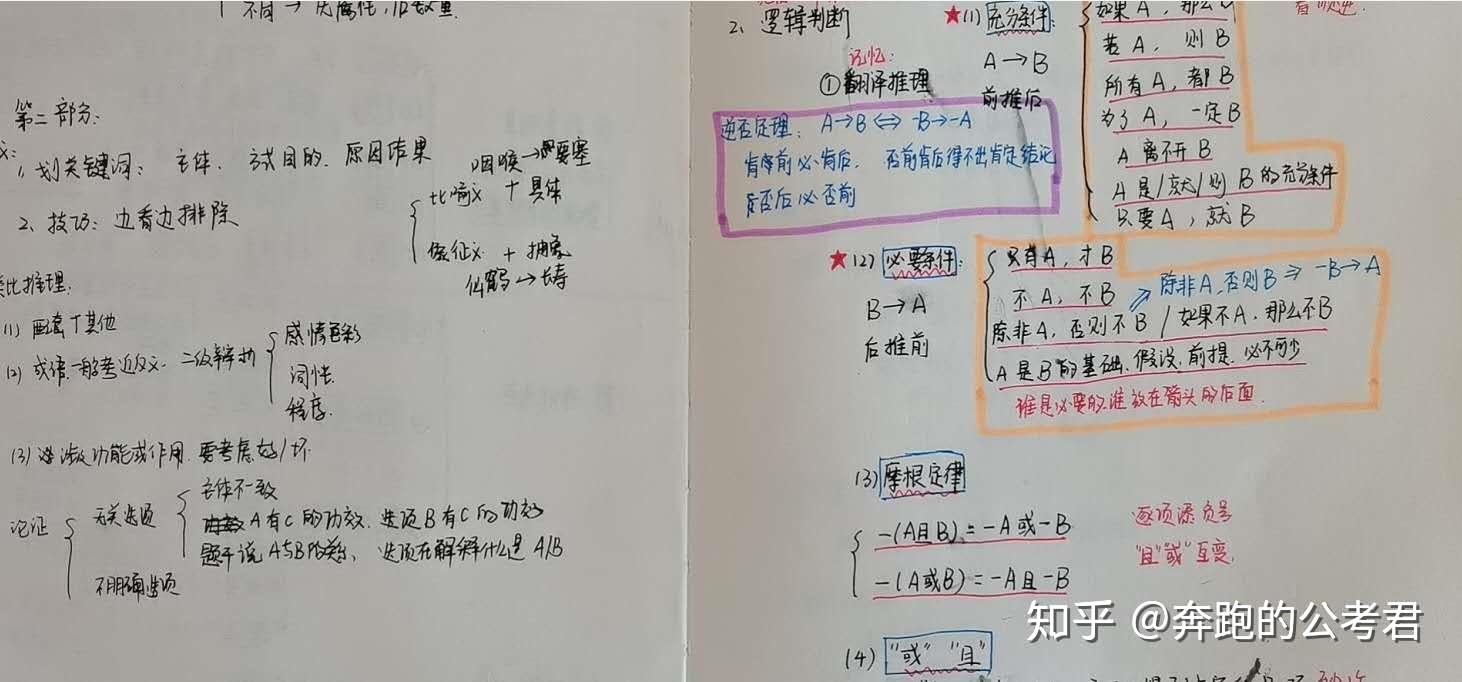 不同 → 先属性,
第二部分:
1、划关键词: 主体、方式目的、原因结果
2、技巧: 边看边排除
咽喉→要塞
比喻义 + 具体
象征义 + 抽象
仙鹤→长寿
类比推理.
(1) 配套
(2) 成语一般考近反义. 二级辨析
感情色彩
词性.
程度.
(3) 涉及功能或作用. 要考虑好/坏
论证
无关选项
主体不一致
A有C的功效. 选项B有C的功效
题干说A与B的关系、选项在解释什么是A/B
不明确选项
2、逻辑判断
记忆:
①翻译推理
逆否定理: A→B⇔-B→-A
肯前必肯后. 否前肯后得不出肯定结论
否后必否前
★(1) 充分条件:
A→B
前推后
如果A, 那么B
若A, 则B
所有A, 都B
为了A, 一定B
A离不开B
A是/就/则B的充分条件
只要A, 就B
★(2) 必要条件:
B→A
后推前
只有A, 才B
不A, 不B
除非A,否则B ⇒ -B→A
除非A, 否则不B / 如果不A, 那么不B
A是B的基础、假设、前提、必不可少
谁是必要的谁放在箭头的后面.
(3) 摩根定律
-(A且B)=-A或-B
-(A或B)=-A且-B
逐项添负号
"且""或"互变.
(4) "或" "且"
知乎 @奔跑的公考君